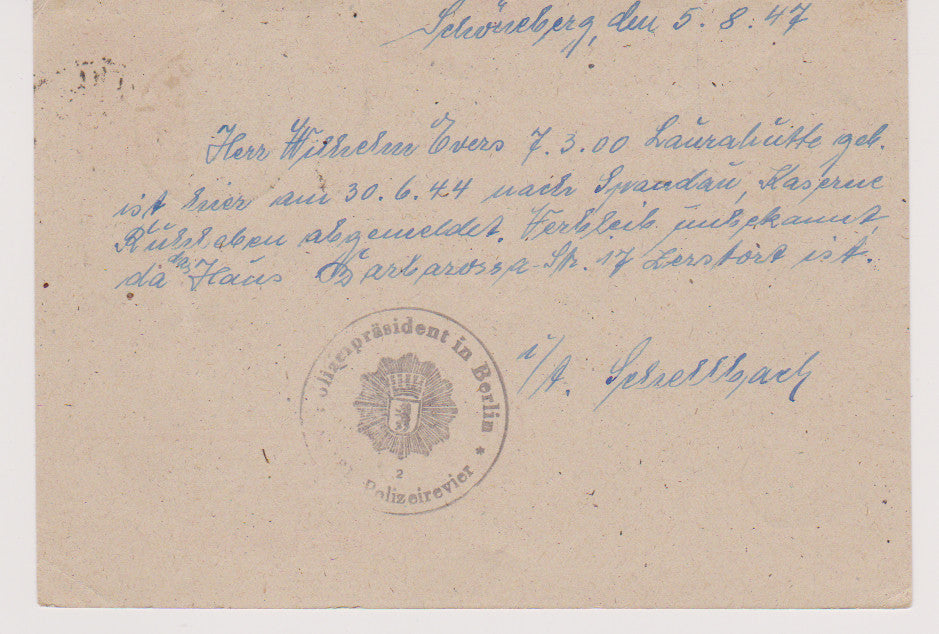 Schöneberg, den 5. 8. 47
Herr Wilhelm Evers 7.3.00 Laurahütte geb.
ist hier am 30.6.44 nach Spandau, Kaserne
abgemeldet. Verbleib unbekannt,
da das Haus Barbarossa-Str. 17 zerstört ist.
i/A.
Polizeipräsident in Berlin *
2
Polizeirevier